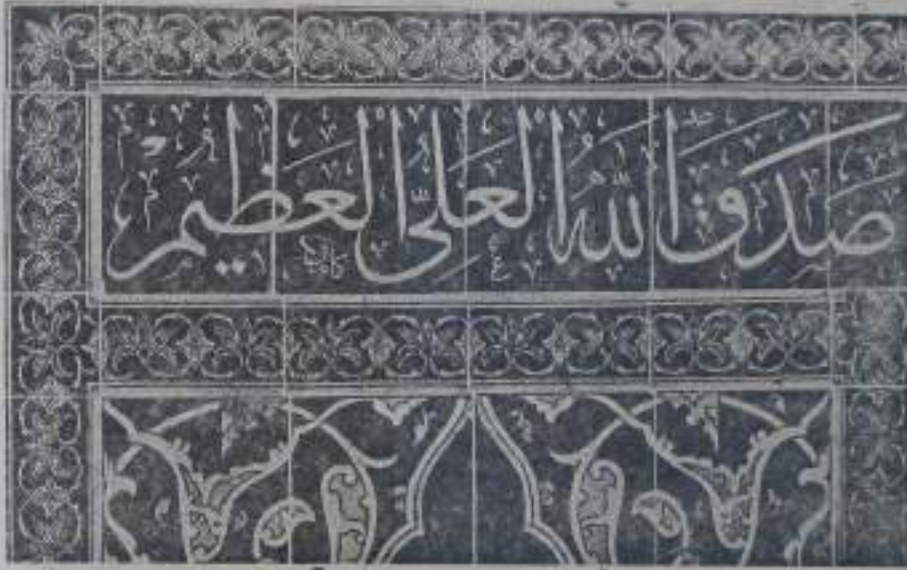 صدق الله العلي العظيم